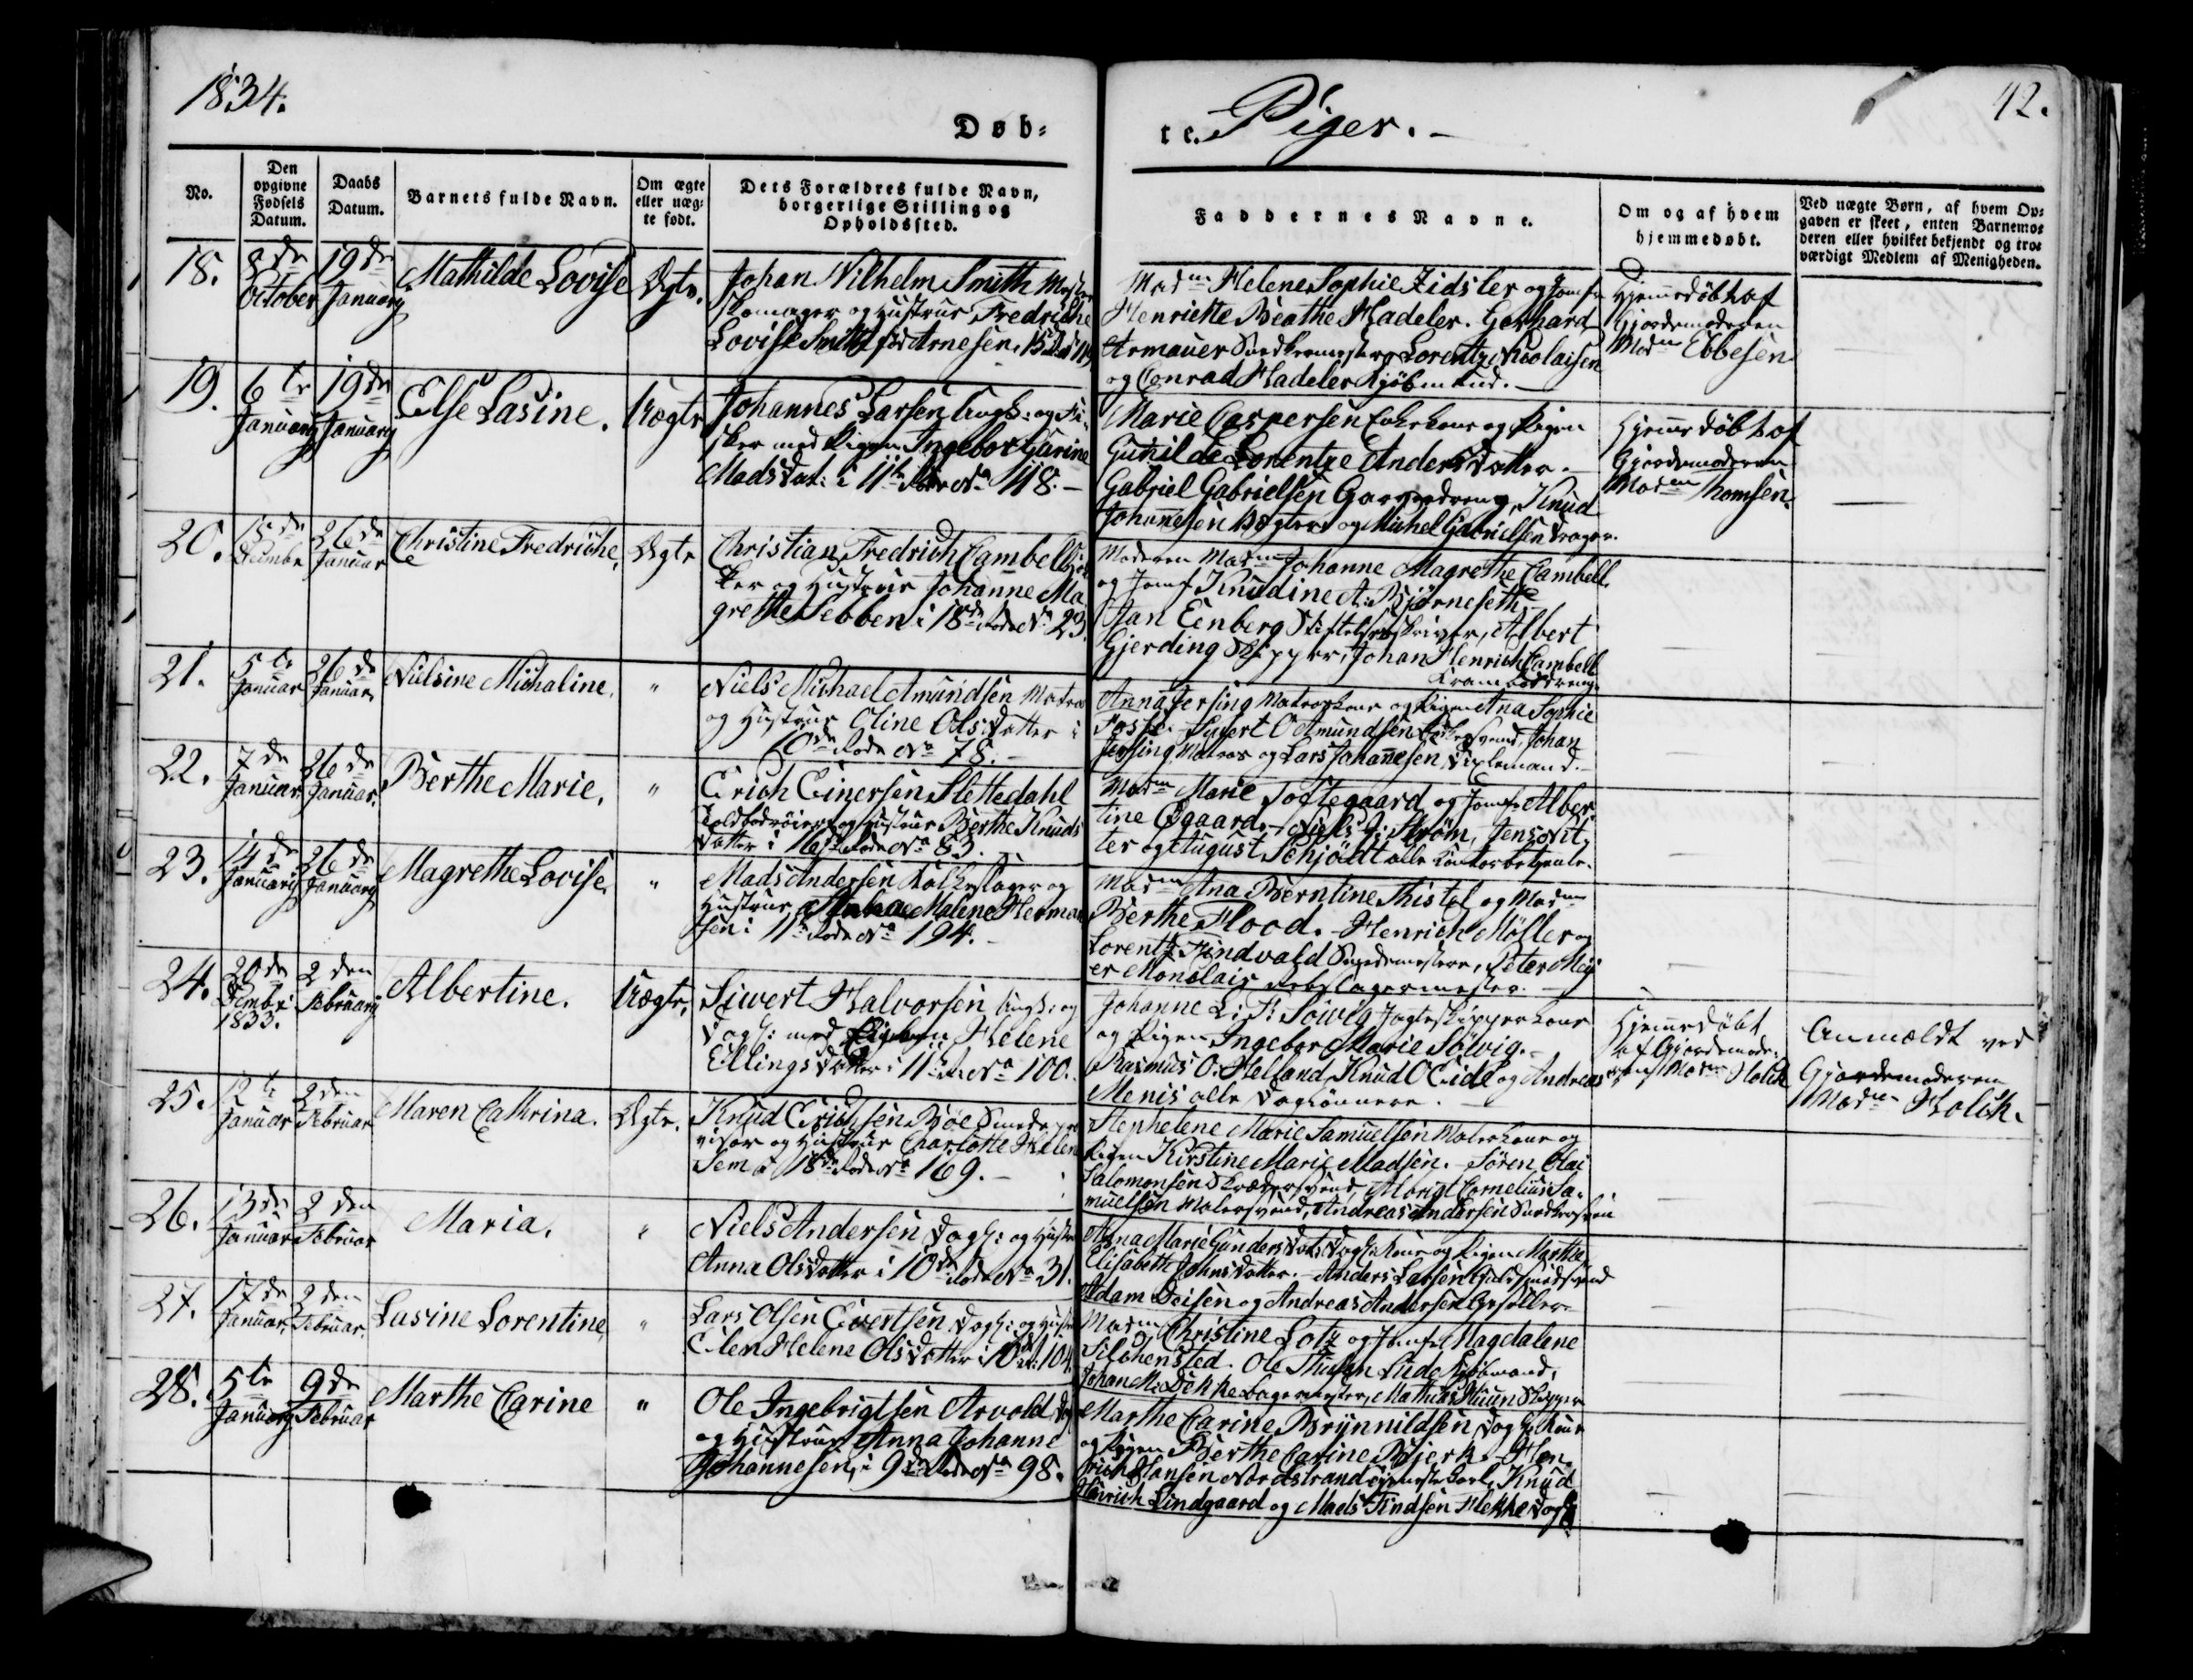 1834.
Døb-
te. Piger. -
42.
No.
Den opgivne Fødsels Datum.
Daabs Datum.
Barnets fulde Navn.
Om ægte eller uægte født.
Dets Forældres fulde Navn,
borgerlige Stilling og
Opholdssted.
Faddernes Navne.
Om og af hvem
hjemmedøbt.
Ved uægte Børn, af hvem Op-
gaven er skeet, enten Barnemo-
deren eller hvilket bekjendt og tro-
værdigt Medlem af Menigheden.
18. 8de October 19de January Mathilde Lovise Ægte.
Johan Wilhelm Smith Mester
Skomager og Hustrue Fredriche
Lovise Smith fød Arnesen. 15de Rode
Madm Helene Sophie Zidsler og Jomfr
Henriette Beathe Hadeler. Gerhard
Armauer Lorentz Nicolaisen
og Conrad Hadeler Kjøbmænd. -
Hjemmedøbt af
Gjordemoderen
Madm Ebbesen
19. 6te January 19de January Else Lasine. Uægte
Johannes Larsen Ungk: og Fi-
sker med Pigen Ingebor Garine
Madsdat: i 11te Rode No 48. -
Marie Caspersen Enkekone og Pigen
Gunilde Lorentze Andersdatter. -
Gabriel Gabrielsen Knud
Johannesen og Michel Gabrielsen Drager.
Hjemmedøbt af
Gjordemoderen
Madm Thomsen.
20. 18de Decembr 26de Januar Christine Fredriche, Ægte
Christian Fredrich Cambell
og Hustrue Johanne Ma-
grethe Sebben i 18de Rode No 23
Moderen Madm Johanne Magrethe Cambell
og Jomf Knudine A: Bjørneseth.
Jan Eenberg Albert
Gjerding Skipper, Johan Henrich Cambell
Kramboddreng.
21. 5te Januar 26de Januar Nielsine Michaline. "
Niels Michael Amundsen Matros
og Hustrue Oline Olsdatter i
No 78. -
Anna Jersing Matroskone og Pigen Ana Sophie
Fosse. Sivert O Amundsen Johan
Jersing Matros og Lars Johannesen
22. 7de Januar 26de Januar. Berthe Marie. "
Erich Einersen Slettedahl
og Hustrue Berthe Knuds
datter i 16de Rode No 83.
Madm Marie Toftegaard og Jomfr Alber-
tine Øgaard. Niels J: Strøm, Jens Wit-
ter og August Schjøldt alle Contorbetjente.
23. 14de January 26de January Magrethe Lovise. "
Mads Andersen og
Hustrue Malene Herman
sen i 11te Rode No 194. -
Madm Ana Berntine Thistel og Madm
Berthe Flood. - Henrich Møller og
Lorentz Findvald Peter Mey-
er Monclair Rebslagermester. -
24. 20de Decembr: 1833. 2den February Albertine. Uægte,
Siwert Halvorsen Ungk: og
Dagl: med Helene
Ellingsdatter i 11te Rode No 100.
Johanne L: F: Solvig Jagteskipperkone
og Pigen Ingebor Marie Sølvig. -
Rasmus O. Helland, Knud O Eide og Andreas
Menis alle Daglønnere. -
Hjemmedøbt
af Gjordemode-
ren Madm Holck
Anmældt ved
Gjordemoderen
Madm Holck.
25. 12te Januar 2den Februar Maren Cathrina. Ægte.
Knud Erichsen Bøe
og Hustrue Charlotte Helene
Sem i 18de Rode No 169. -
Stephelene Marie Samuelsen og
Pigen Kirstine Marie Madsen. - Søren Olai
Salomonsen Morigt Cornelius Sa-
muelsen Malersvend, Andreas Andersen
26. 13de Januar 2den Februar Maria. "
Niels Andersen Dagl: og Hustrue
Anna Olsdatter i 10de Rode No 31.
Anna Marie Gundersdat: Dagl: kone og Pigen Marthe
Elisabeth Johnsdatter. - Anders Larsen
Adam Deisen og Andreas Andersen
27. 17de Januar, 2den Februar. Lasine Lorentine "
Lars Olsen Evertsen Dagl: og Hustr
Elen Helene Olsdatter i 10de 104.
Madm Christine Lotz og Jomfr Magdalene
Silchensted. Ole Kjøbmand,
Johan M: Dekke Bagermester, Mathias Skipper
28. 5te January 9de Februar Marthe Carine "
Ole Ingebrigtsen Arvold Dag
og Hustrue Anna Johanne
Johannesen, i 9de Rode No 98.
Marthe Carine Brynnildsen Dagl: kone
og Pigen Berthe Carine Bjerk. Hen-
rich Hansen Nordstrand Knud
Henrich Lindgaard og Mads Findsen Flekke Dagl